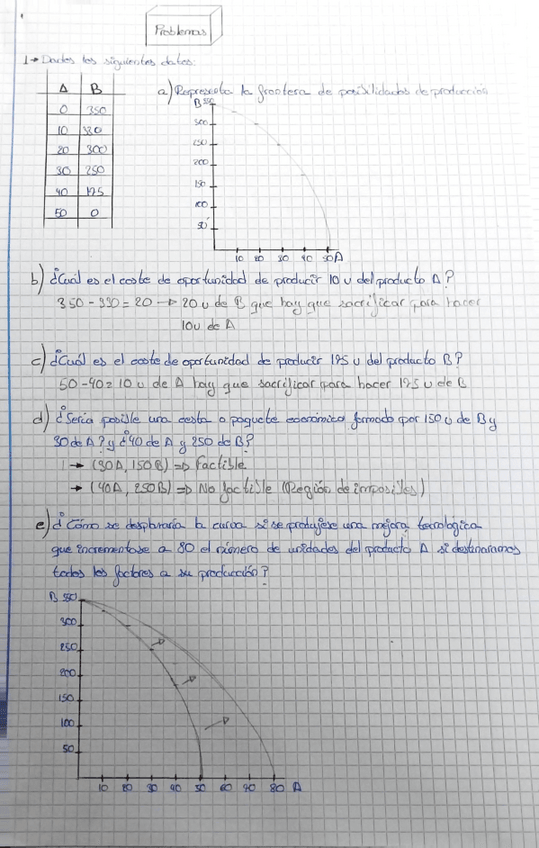 Problemas
1→ Dados los siguientes datos:
A B
0 350
10 330
20 300
30 250
40 175
50 0
a) Representa la frontera de posibilidades de producción
B 350
300
250
200
150
100
50
10 20 30 40 50 A
b) ¿Cuál es el coste de oportunidad de producir 10 u del producto A?
350-330=20 → 20 u de B que hay que sacrificar para hacer
10u de A
c) ¿Cuál es el coste de oportunidad de producir 175 u del producto B?
50-40=10 u de A hay que sacrificar para hacer 175 u de B
d) ¿Sería posible una cesta o paquete económico formado por 150 u de B y
30 de A? y ¿40 de A y 250 de B?
→ (30A, 150B) => Factible
→ (40A, 250B) => No factible (Región de imposibles)
e) ¿Cómo se desplazaría la curva si se produjese una mejora tecnológica
que incrementase a 80 el número de unidades del producto A si destináramos
todos los factores a su producción?
B 350
300
250
200
150
100
50
10 20 30 40 50 60 70 80 A